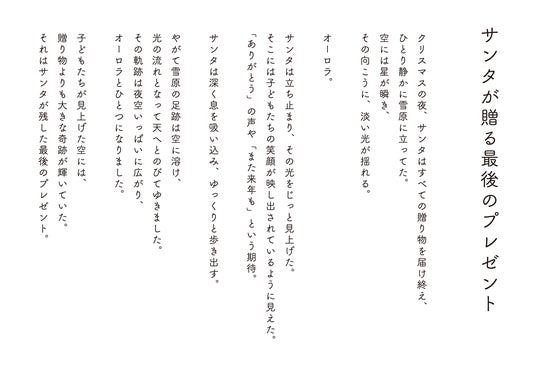 サンタが贈る最後のプレゼント
クリスマスの夜、サンタはすべての贈り物を届け終え、
ひとり静かに雪原に立ってた。
空には星が瞬き、
その向こうに、淡い光が揺れる。
オーロラ。
サンタは立ち止まり、その光をじっと見上げた。
そこには子どもたちの笑顔が映し出されているように見えた。
「ありがとう」の声や「また来年も」という期待。
サンタは深く息を吸い込み、ゆっくりと歩き出す。
やがて雪原の足跡は空に溶け、
光の流れとなって天へとのびてゆきました。
その軌跡は夜空いっぱいに広がり、
オーロラとひとつになりました。
子どもたちが見上げた空には、
贈り物よりも大きな奇跡が輝いていた。
それはサンタが残した最後のプレゼント。